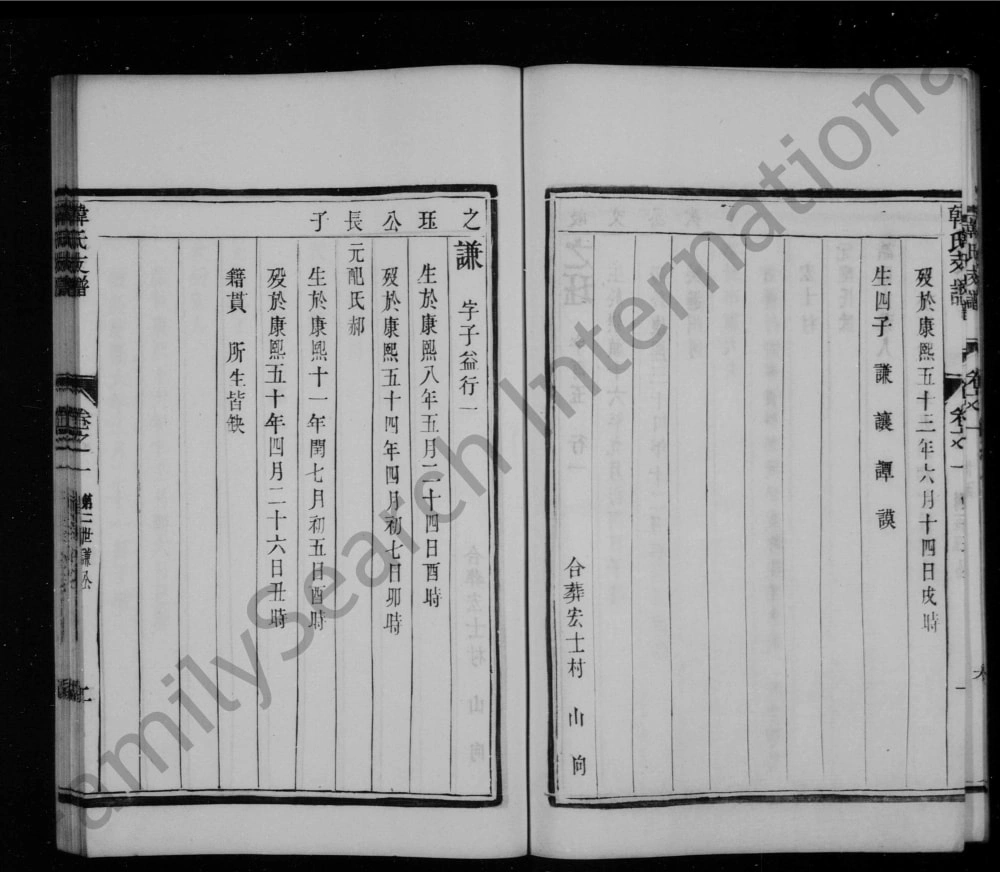 韓氏支譜 卷之一
歿於康熙五十三年六月十四日戌時
生四子 謙 讓 譚 謨
合葬宏士村 山 向
之珏公長子
謙 字子益行一
生於康熙八年五月二十四日酉時
歿於康熙五十四年四月初七日卯時
元配氏郝
生於康熙十一年閏七月初五日酉時
歿於康熙五十年四月二十六日丑時
籍貫 所生皆缺
韓氏支譜 卷之一 第二世謙公 二
amilySearch Internationa